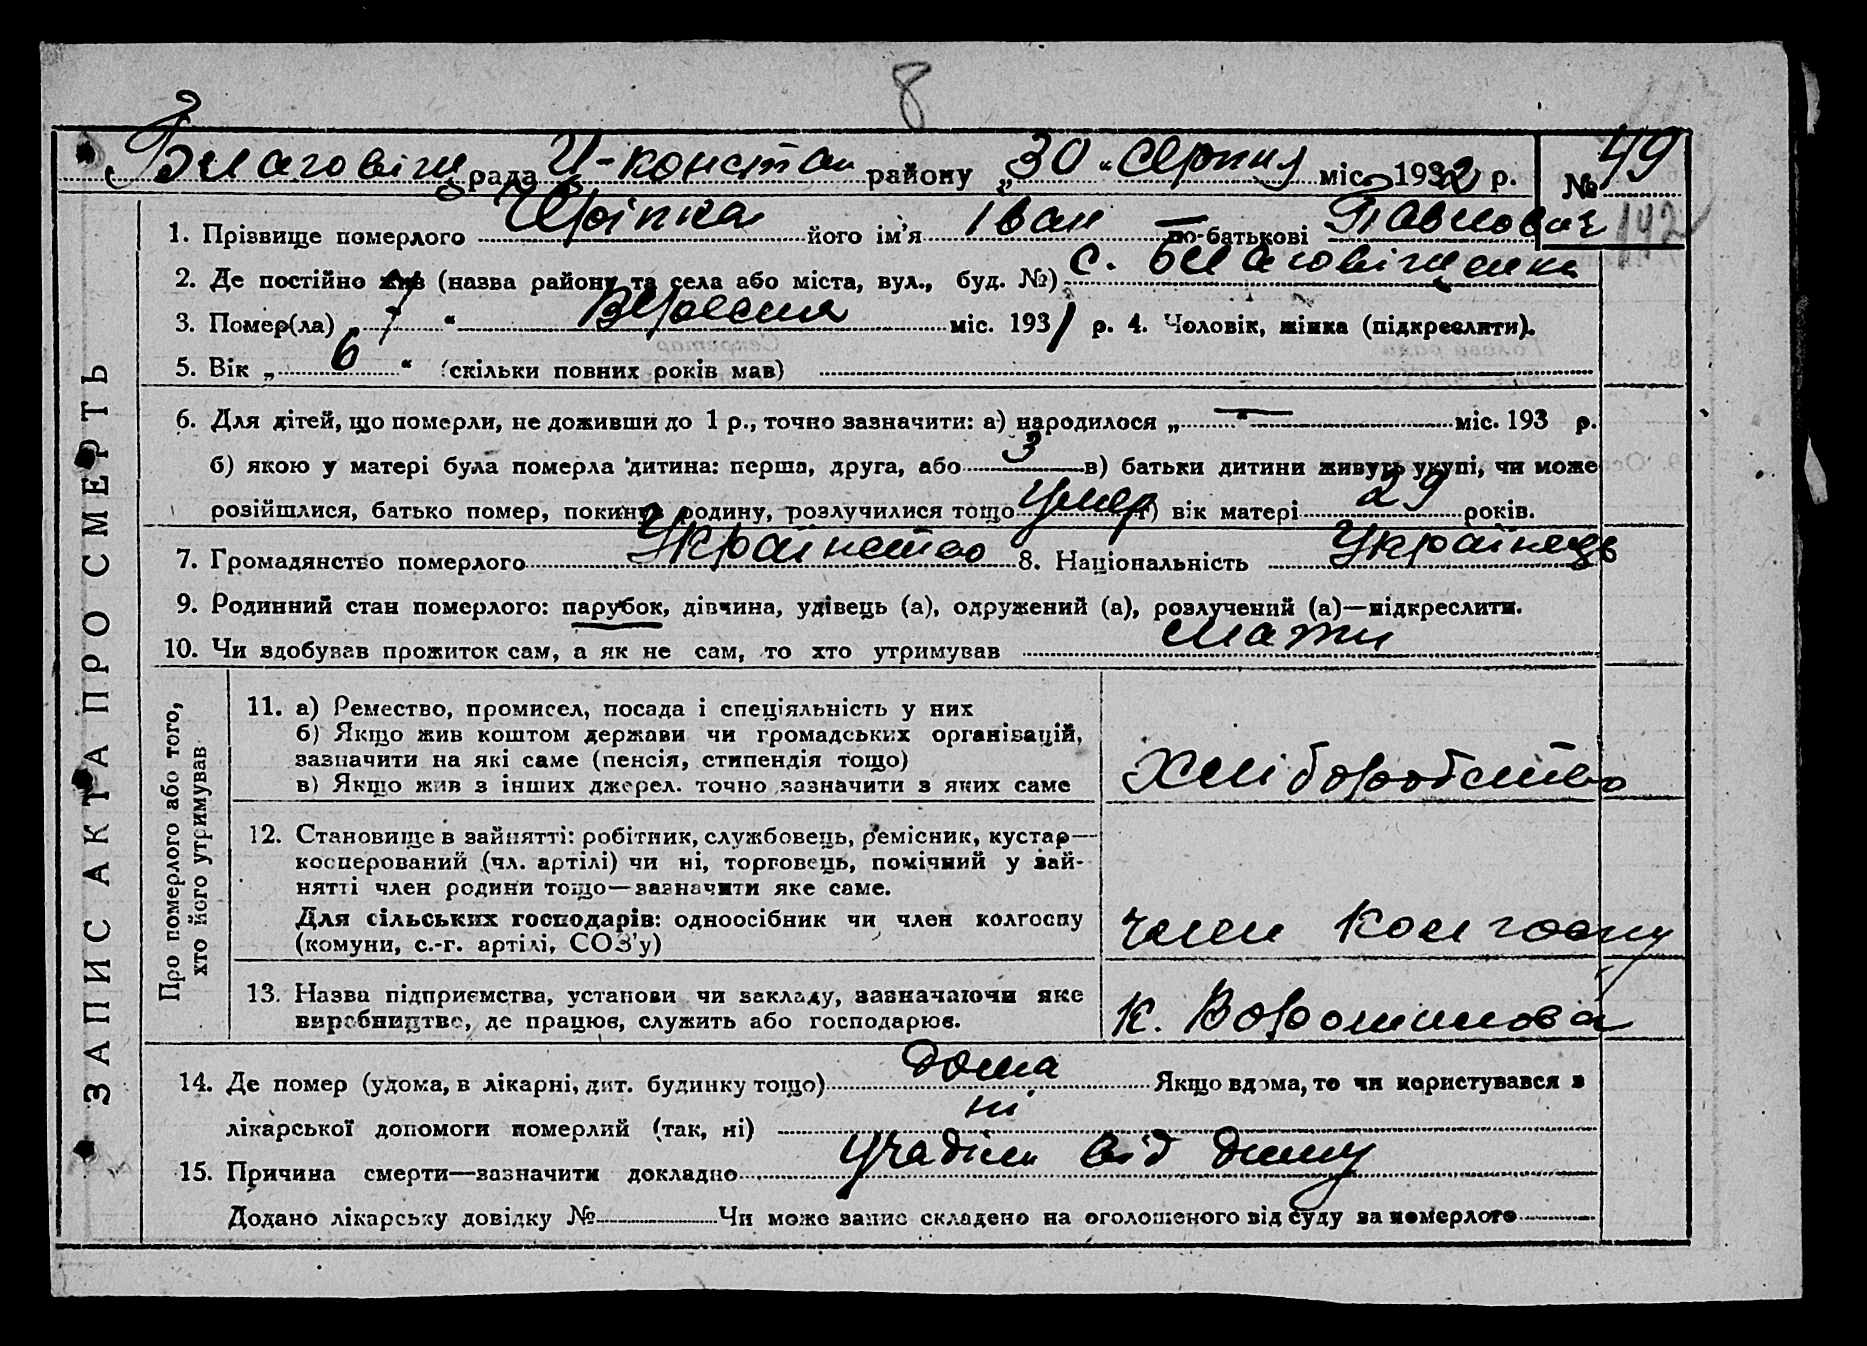 8
Благовіщ рада И-констан району „30“ Серпня міс. 1932 р. № 49
1. Прізвище померлого його ім'я Іван по-батькові Павлович 142
2. Де постійно жив (назва району та села або міста, вул., буд. №) с. Благовіщенка
3. Помер(ла) 7 “ Вересня міс. 1931 р. 4. Чоловік, жінка (підкреслити).
5. Вік „ 6 “ (скільки повних років мав)
6. Для дітей, що померли, не доживши до 1 р., точно зазначити: а) народилося „ — “ міс. 193 р.
б) якою у матері була померла дитина: перша, друга, або 3 в) батьки дитини живуть укупі, чи може
розійшлися, батько помер, покинув родину, розлучилися тощо умер г) вік матері 29 років.
7. Громадянство померлого Українство 8. Національність Українець
9. Родинний стан померлого: парубок, дівчина, удівець (а), одружений (а), розлучений (а)—підкреслити.
10. Чи здобував прожиток сам, а як не сам, то хто утримував мати
ЗАПИС АКТА ПРО СМЕРТЬ
Про померлого або того,
хто його утримував
11. а) Ремество, промисел, посада і спеціяльність у них
б) Якщо жив коштом держави чи громадських організацій,
зазначити на які саме (пенсія, стипендія тощо)
в) Якщо жив з інших джерел. точно зазначити з яких саме
Хліборобство
12. Становище в зайнятті: робітник, службовець, ремісник, кустар—
кооперований (чл. артілі) чи ні, торговець, помічний у зай-
нятті член родини тощо—зазначити яке саме.
Для сільських господарів: одноосібник чи член колгоспу
(комуни, с.-г. артілі, СОЗ'у)
член колгоспу
13. Назва підприємства, установи чи закладу, зазначаючи яке
виробництво, де працює, служить або господарює.
к. Ворошилова
14. Де помер (удома, в лікарні, дит. будинку тощо) дома Якщо вдома, то чи користувався з
лікарської допомоги померлий (так, ні) ні
15. Причина смерти—зазначити докладно від диму
Додано лікарську довідку № Чи може запис складено на оголошеного від суду за померлого